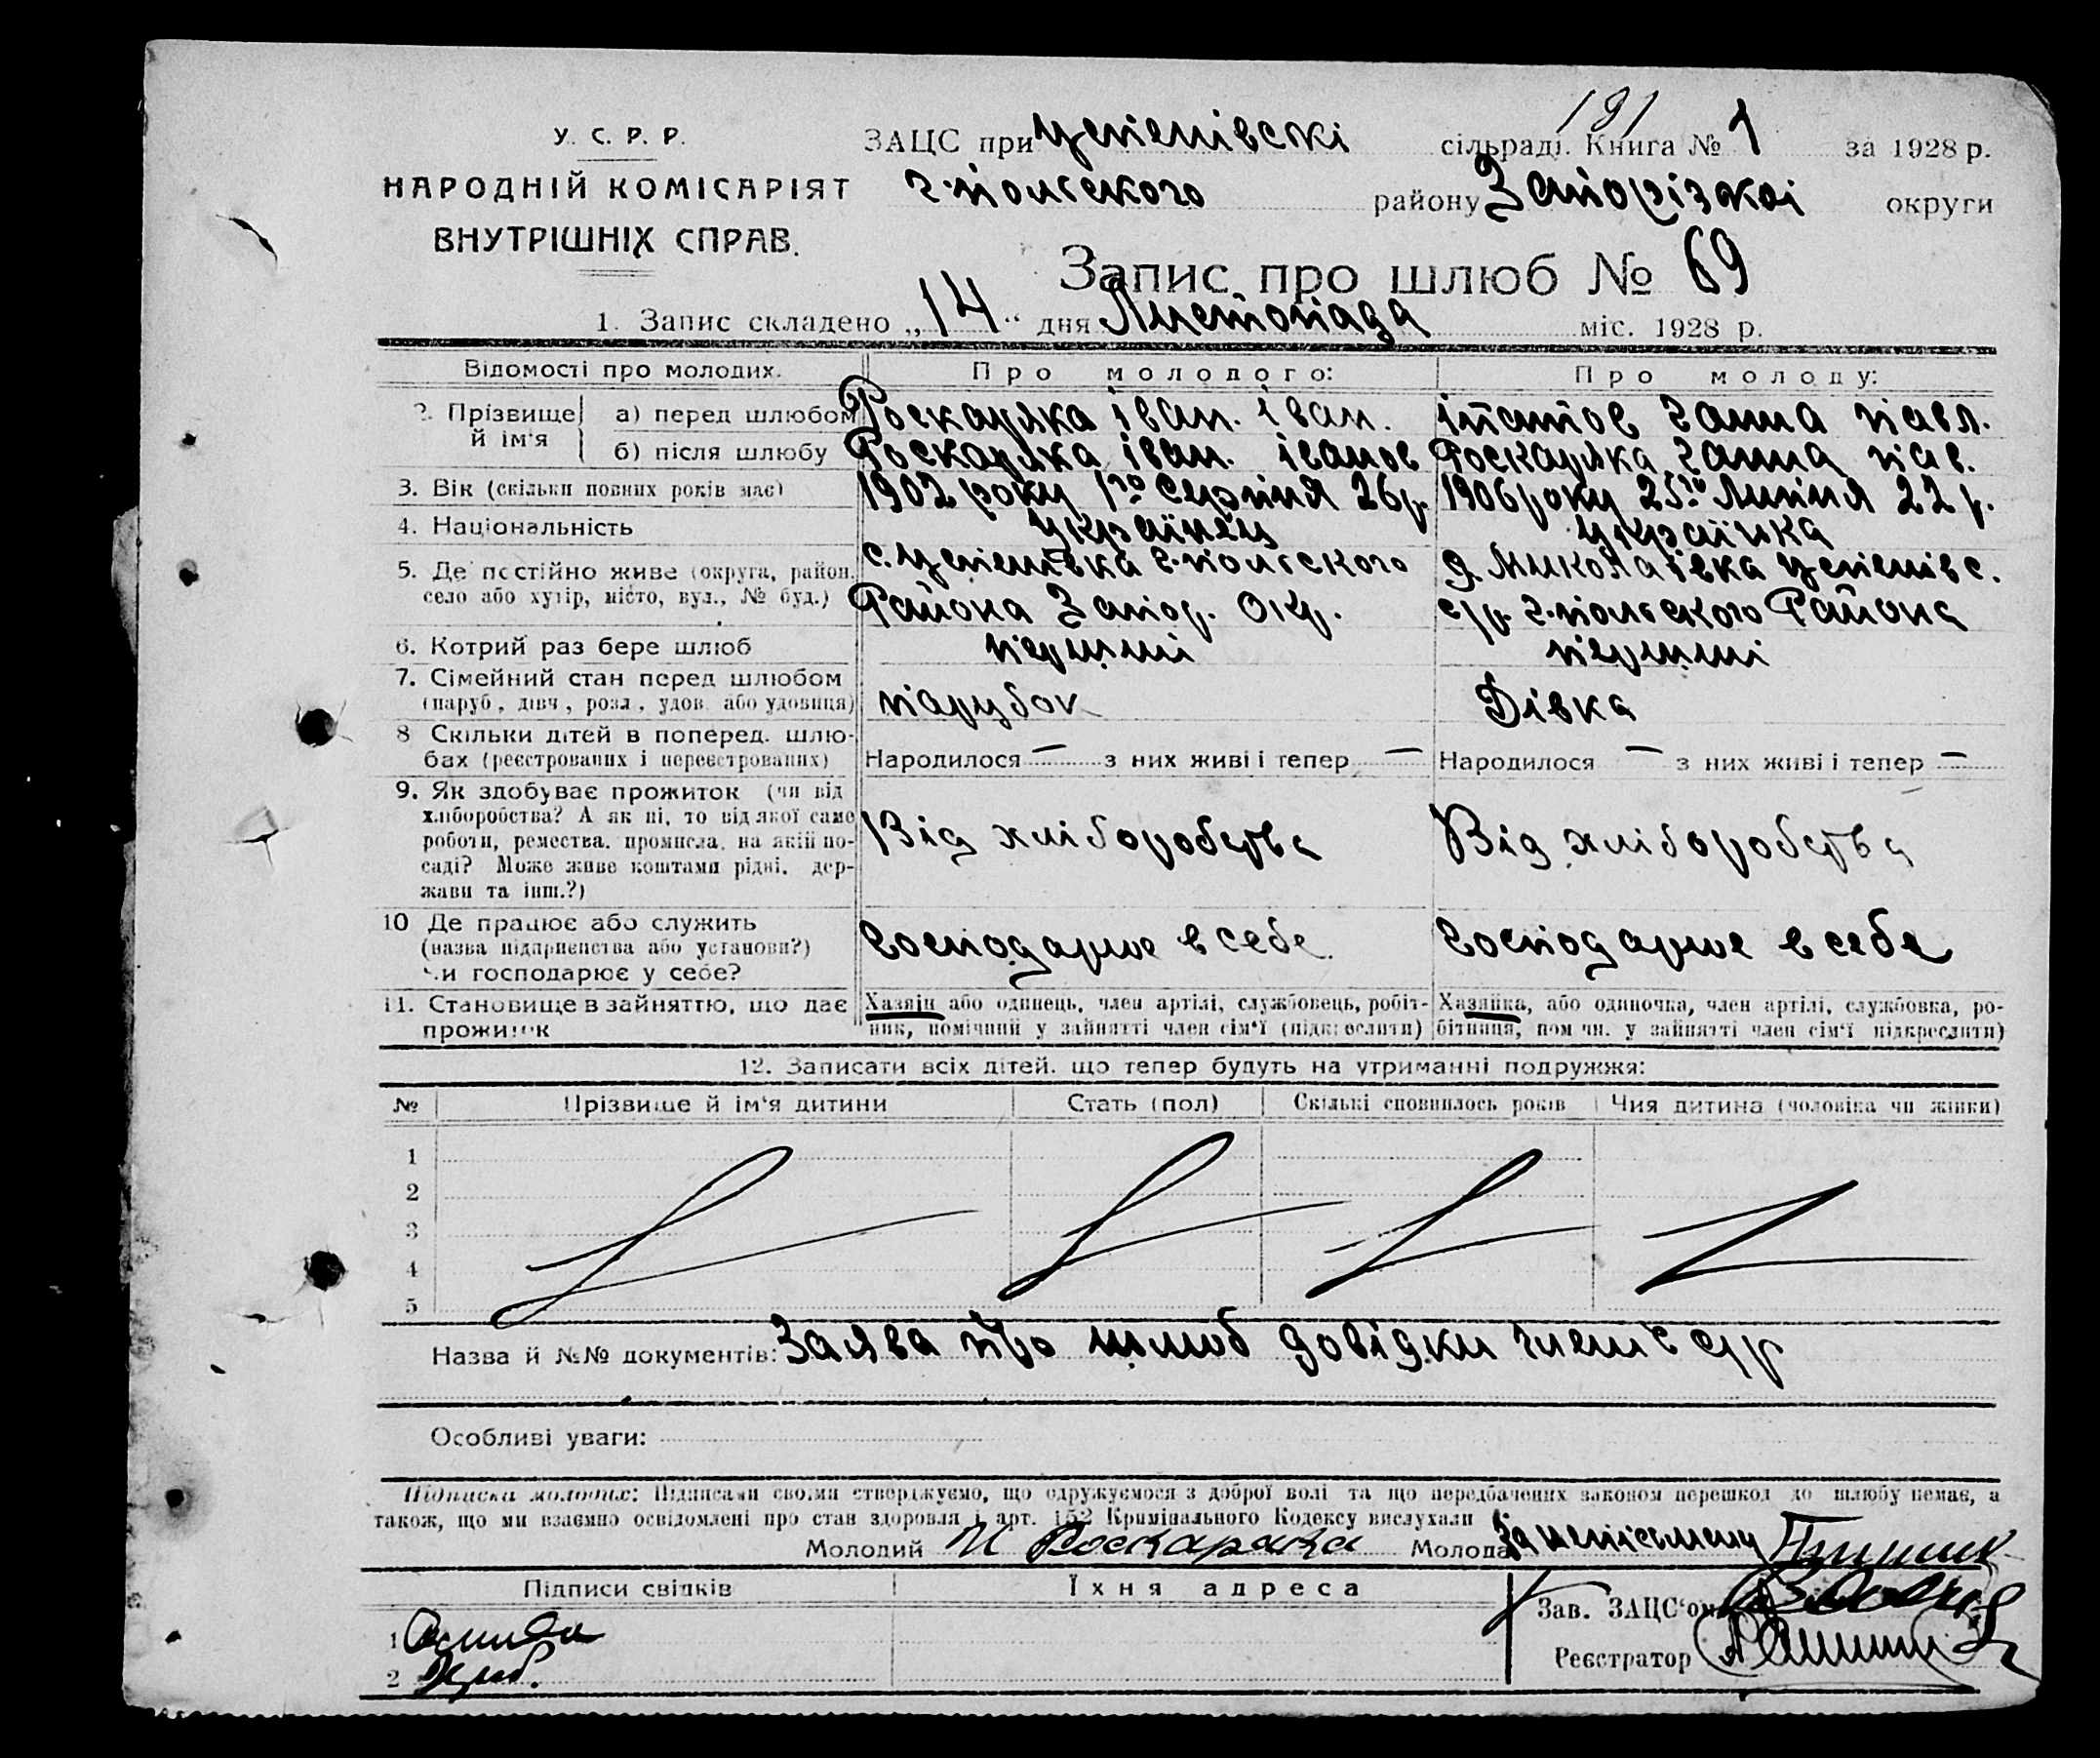 191
У. С. Р. Р.
НАРОДНІЙ КОМІСАРІЯТ
ВНУТРІШНІХ СПРАВ.
ЗАЦС при Успенівскі сільраді. Книга № 1 за 1928 р.
г.польского району Запорізкої округи
Запис про шлюб № 69
1. Запис складено „14“ дня Листопада міс. 1928 р.
Відомості про молодих. Про молодого: Про молоду:
2. Прізвище й ім'я
а) перед шлюбом Роскаряка іван. іван. ігнатов ганна павл.
б) після шлюбу Роскаряка іван. іванов Роскаряка ганна пав.
3. Вік (скільки повних років має) 1902 року 1го серпня 26 р. 1906 року 25го липня 22 р.
4. Національність українец українка
5. Де постійно живе (округа, район, с. Успенівка г.польского д. Миколаівка успенівс.
село або хутір, місто, вул., № буд.) Района Запор. Окр. с/р. г.польского Района
6. Котрий раз бере шлюб перший перший
7. Сімейний стан перед шлюбом
(паруб., дівч., розл., удов. або удовиця) парубок Дівка
8 Скільки дітей в поперед. шлю-
бах (реєстрованих і нереєстрованих) Народилося — з них живі і тепер — Народилося — з них живі і тепер —
9. Як здобуває прожиток (чи від
хліборобства? А як ні, то від якої саме
роботи, ремества, промисла, на якій по- Від хліборобства Від хліборобства
саді? Може живе коштами рідні, дер-
жави та інш.?)
10 Де працює або служить
(назва підприємства або установи?) Господарює в себе Господарює в себе
чи господарює у себе?
11. Становище в зайняттю, що дає Хазяїн або одинець, член артілі, службовець, робіт- Хазяйка, або одиночка, член артілі, службовка, ро-
прожиток ник, помічний у зайнятті член сім'ї (підкреслити) бітниця, пом чн. у зайнятті член сім'ї підкреслити)
12. Записати всіх дітей, що тепер будуть на утриманні подружжя:
№ Прізвище й ім'я дитини Стать (пол) Скількі сповнилось років Чия дитина (чоловіка чи жінки)
1
2
3
4
5
Назва й №№ документів: Заява про шлюб довідки с/р
Особливі уваги:
Підписка молодих: Підписами своїми стверджуємо, що одружуємося з доброї волі та що передбачених законом перешкод до шлюбу немає, а
також, що ми взаємно освідомлені про стан здоровля і арт. 152 Кримінального Кодексу вислухали
Молодий И Роскаряка Молода За неписьмену
Підписи свідків Їхня адреса
Зав. ЗАЦС'ом
1
Реєстратор
2